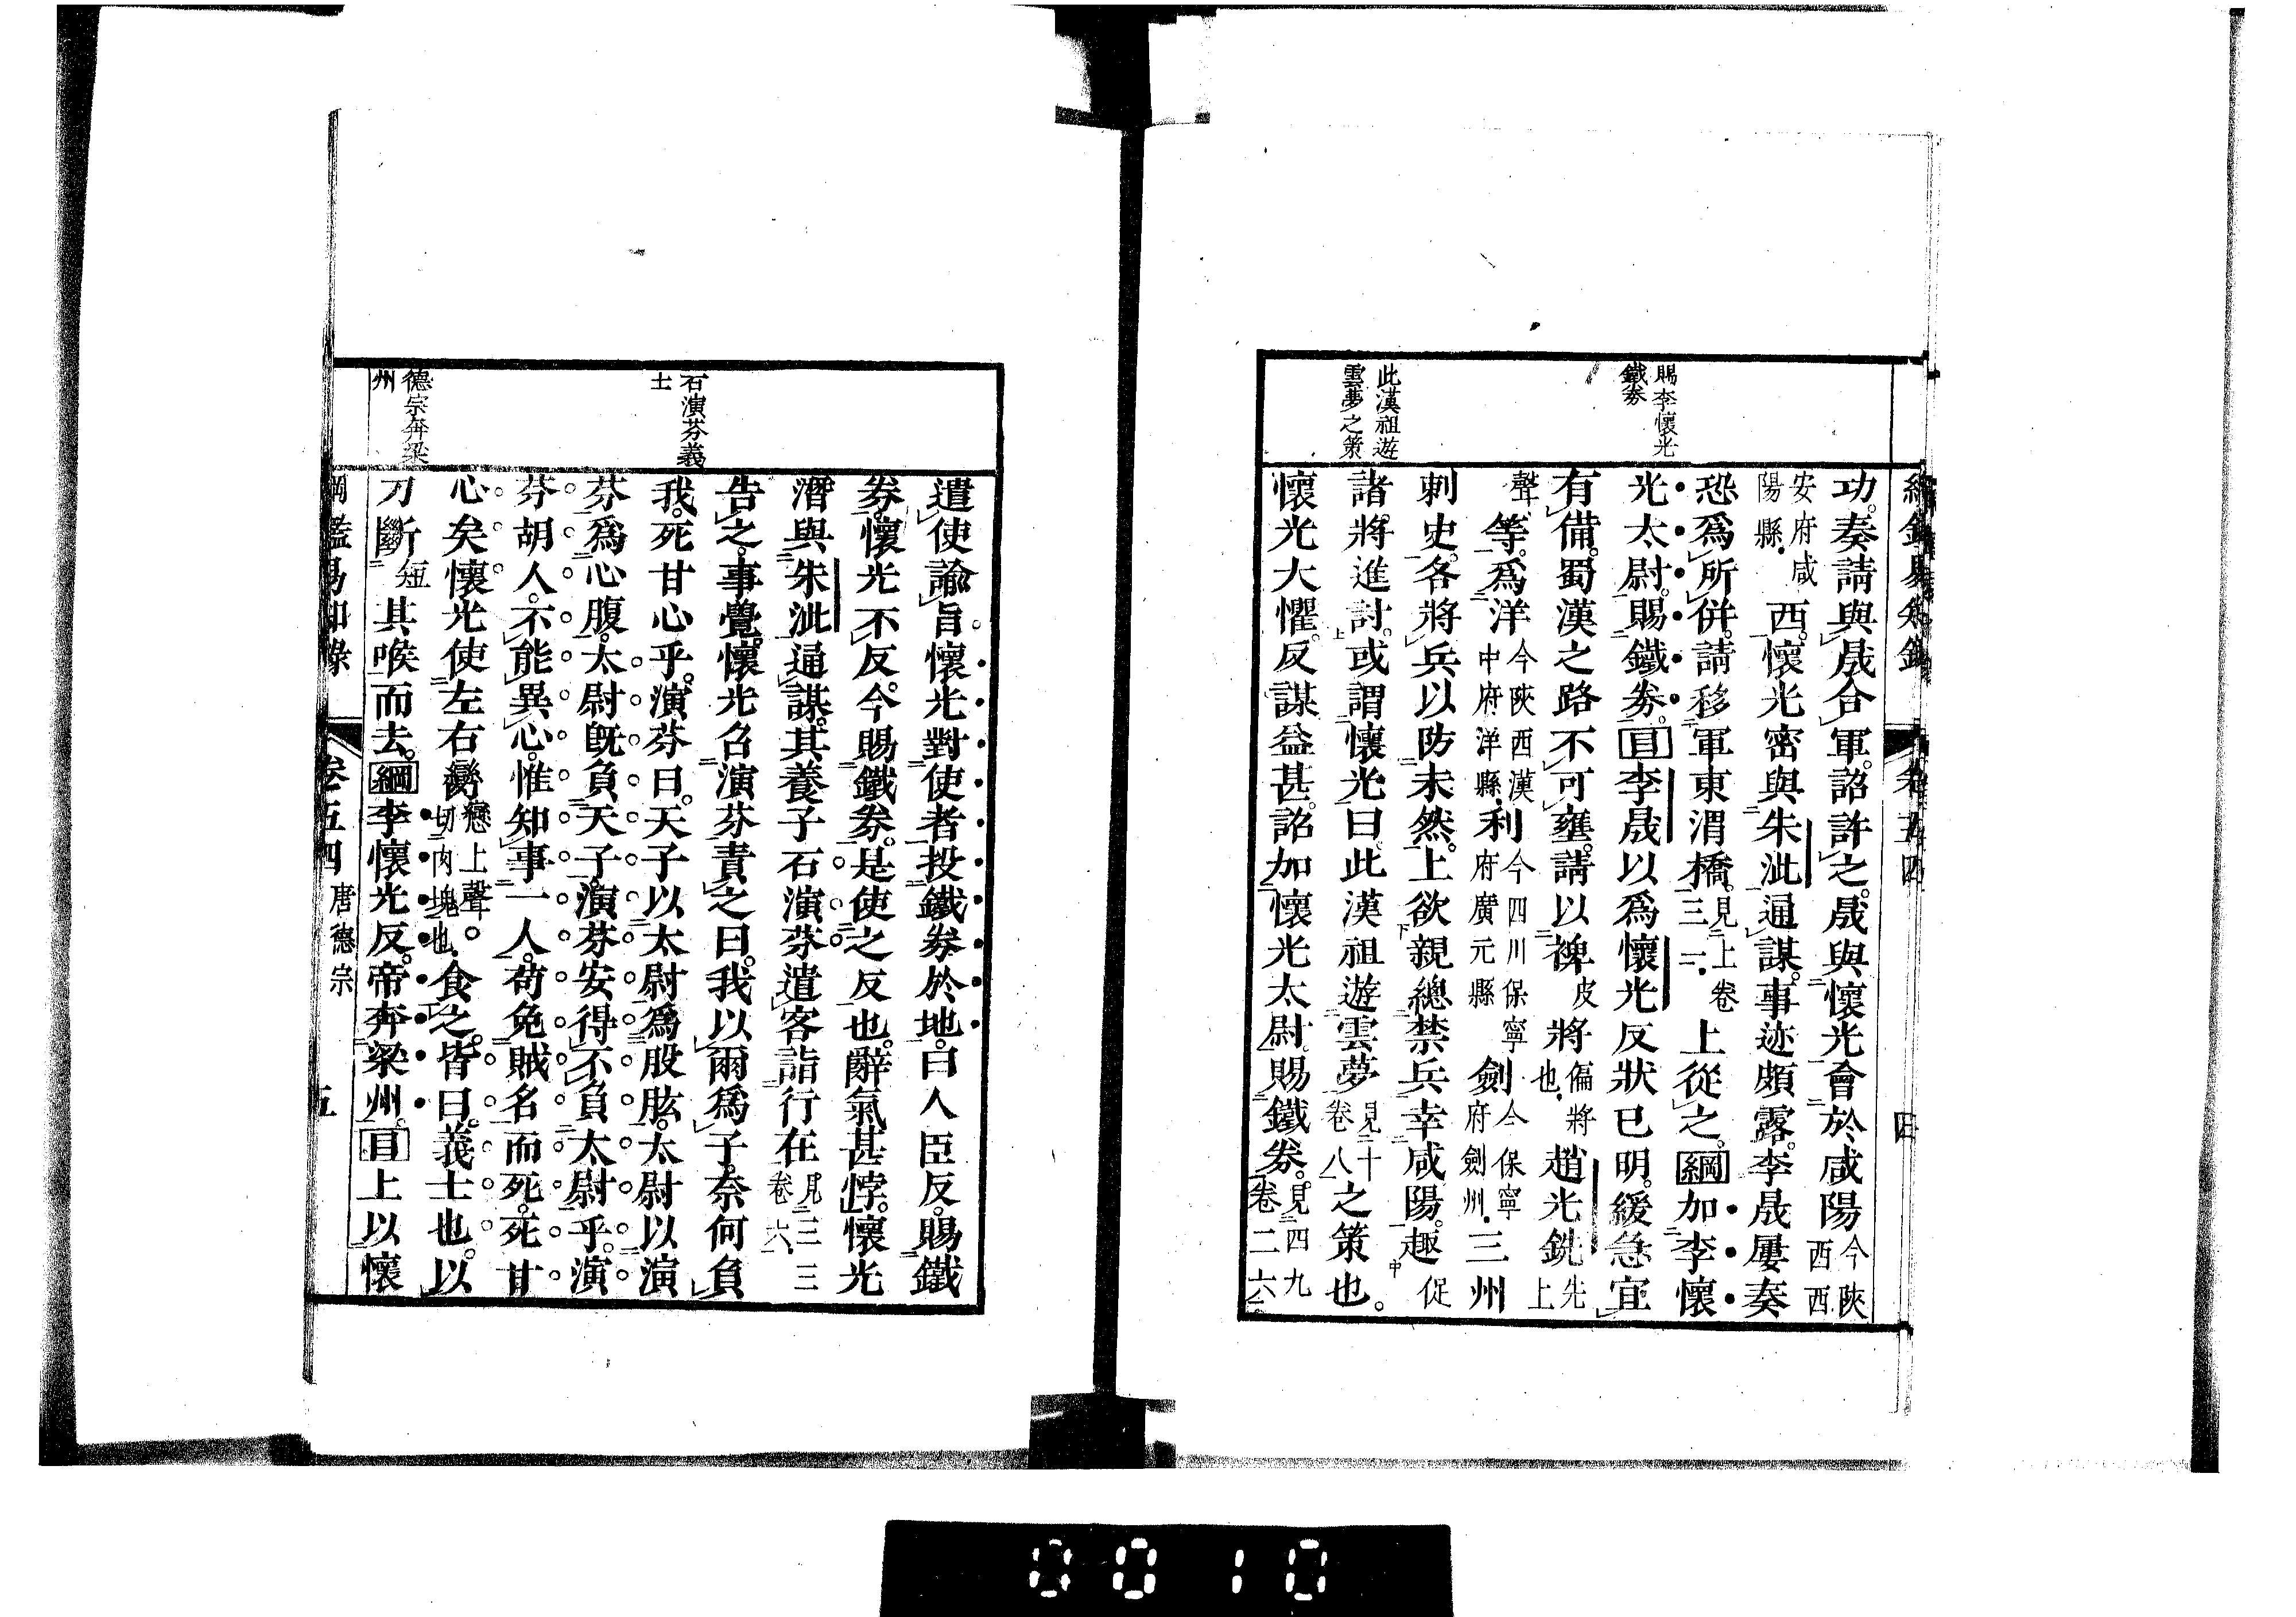 綱鑑易知錄 卷五四 四
賜李懷光
鐵券
此漢祖遊
雲夢之策
功。奏請與晟合軍。詔許之。晟與懷光會於咸陽今陝西西
安府咸陽縣.西。懷光密與朱泚通謀。事迹頗露。李晟屢奏
恐爲所併。請移軍東渭橋。見上卷三二.上從之。綱加李懷
光太尉。賜鐵券。目李晟以爲懷光反狀已明。緩急宜
有備。蜀漢之路不可壅。請以裨皮將偏將也.趙光銑先上
聲等。爲洋今陝西漢中府洋縣.利今四川保寧府廣元縣劍今保寧府劍州.三州
刺史。各將兵以防未然。上欲親總禁兵幸咸陽。趣促
諸將進討。或謂懷光曰。此漢祖遊雲夢見十卷八之策也。
懷光大懼。反謀益甚。詔加懷光太尉。賜鐵券。見四九卷二六
石演芬義
士
德宗奔梁
州
遣使諭旨。懷光對使者投鐵券於地。曰人臣反。賜鐵
券。懷光不反。今賜鐵券。是使之反也。辭氣甚悖。懷光
潛與朱泚通謀。其養子石演芬遣客詣行在見三三卷六.
告之。事覺。懷光召演芬責之曰。我以爾爲子。奈何負
我。死甘心乎。演芬曰。天子以太尉爲股肱。太尉以演
芬爲心腹。太尉旣負天子。演芬安得不負太尉乎。演
芬胡人。不能異心。惟知事一人。苟免賊名而死。死甘
心矣。懷光使左右臠戀上聲。切肉塊也.食之。皆曰。義士也。以
刀斷短其喉而去。綱李懷光反。帝奔梁州。目上以懷
綱鑑易知錄 卷五四 唐德宗 五
0010